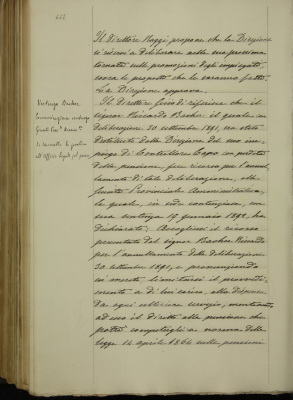 Il Direttore Maggi, propone che la Direzione
si riservi a deliberare nella sua prossima
tornata sulle promozioni degli impiegati,
ora le proposte che le saranno fatte.
La Direzione approva.
Il Direttore riferisce che il
signor Riccardo Bacher, il quale, in
deliberazione 30 settembre 1891, era stato
dalla Direzione dal suo im-
piego di Controllore Capo
della pensione, fece ricorso per l'annul-
lamento di tale deliberazione, alla
Giunta Provinciale Amministrativa,
la quale, in sede contenziosa, con
sua sentenza 15 gennaio 1892, ha
dichiarato: Accogliersi il ricorso
presentato dal signor Bacher Riccardo
per l'annullamento della deliberazione
30 settembre 1891, e pronunziando
in merito, limitarsi il provvedi-
mento a di lui carico, alla dispensa
da ogni ulteriore servizio, mantenuto
ad esso il diritto alla pensione che
potrà competergli a norma della
legge 14 aprile 1864 sulle pensioni
Bacher